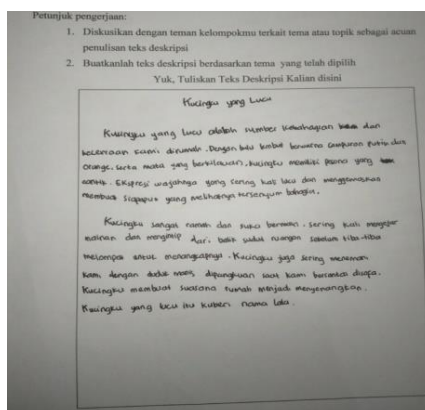 Petunjuk pengerjaan:
1. Diskusikan dengan teman kelompokmu terkait tema atau topik sebagai acuan
penulisan teks deskripsi
2. Buatkanlah teks deskripsi berdasarkan tema yang telah dipilih
Yuk, Tuliskan Teks Deskripsi Kalian disini
Kucingku yang Lucu
Kucingku yang lucu adalah sumber kebahagian dan
keceriaan kami dirumah. Dengan bulu lembut berwarna campuran putih dan
orange, serta mata yang berkilauan, kucingku memiliki pesona yang
cantik. Ekspresi wajahnya yang sering kali lucu dan menggemaskan
membuat siapapun yang melihatnya tersenyum bahagia.
Kucingku sangat ramah dan suka bermain. Sering kali mengejar
mainan dan mengintip dari balik sudut ruangan sebelum tiba-tiba
melompat untuk menangkapnya. Kucingku juga sering menemani
kami, dengan duduk dipangkuan saat kami bersantai
Kucingku membuat suasana rumah menjadi menyenangkan.
Kucingku yang lucu itu kuberi nama lala.